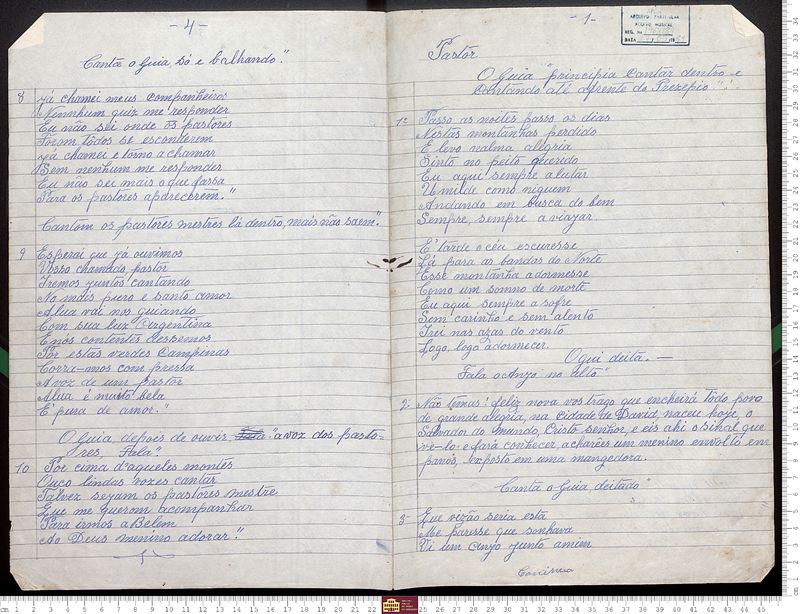 - 4 -
Canta o Guia, só e balhando."
8 Já chamei meus companheiros
Nennhum quiz me responder
Eu não sei onde os pastores
Foram todos se esconderem
Já chamei e torno a chamar
Sem nenhum me responder
Eu não sei mais o que fassa
Para os pastores aparecerem."
Cantam os pastores mestres lá dentro, mais não saem."
9 Esperai que já ouvimos
Vosso chamado, pastor
Iremos juntos cantando
No mais puro e santo amor
A lua vai nos guiando
Com sua luz Argentina
E nos contentes dessemos
Por estas verdes Campinas
Corra-mos com pressa
A voz de um pastor
A lua é muito bela
E' pura de amor."
O Guia depois de ouvir a voz dos pasto-
res, Fala"
10 Por cima d'aqueles montes
Ouço lindas vozes cantar
Talvez sejam os pastores mestre
Que me querem acompanhar
Para irmos a Belem
Ao Deus menino adorar."
- 1 -
ARQUIVO PARTICULAR
ACERVO MUSICAL
REG. No
DATA
Pastôr
O Guia "principia cantar dentro e
cantando até a frente do Prezepio"
1ª Passo as noites passo os dias
Nestas montanhas perdido
E levo nalma alegria
Sinto no peito querido
Eu aqui sempre a lutar
Umilde como niguem
Andando em busca do bem
Sempre, sempre a viajar
E' tarde o céu escuresse
Lá para as bandas do Norte
Esse montanha adormesse
Como um somno de morte
Eu aqui sempre a sofre
Sem carinho e sem alento
Irei nas azas do vento
Logo, logo adormecer.
O gui deita. —
Fala o Anjo no alto"
2- Não temas! feliz nova vos trago que encheirá todo povo
de grande alegria, na cidade de David, naceu hoje, o
Salvador do mundo, Cristo senhor, e eis ahi o sinal que
vo-lo-e fará conhecer, achareis um menino envolto em
panos, exposto em uma mangedora.
Canta o Guia, deitado"
3- Que vizão seria esta
Me paresse que sonhava
Vi um anjo junto amim